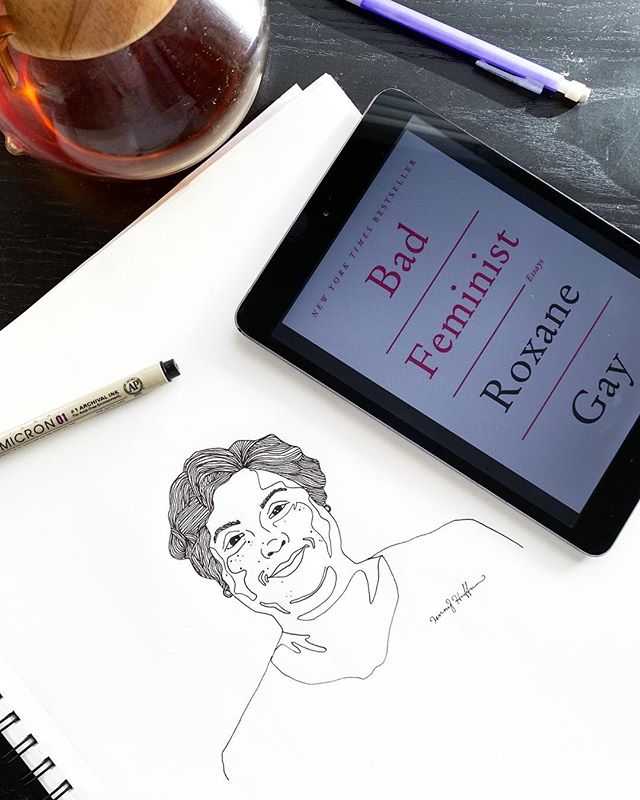 NEW YORK TIMES BESTSELLER
Bad
Feminist
Essays
Roxane
Gay
MICRON 01
#1 ARCHIVAL INK
AP